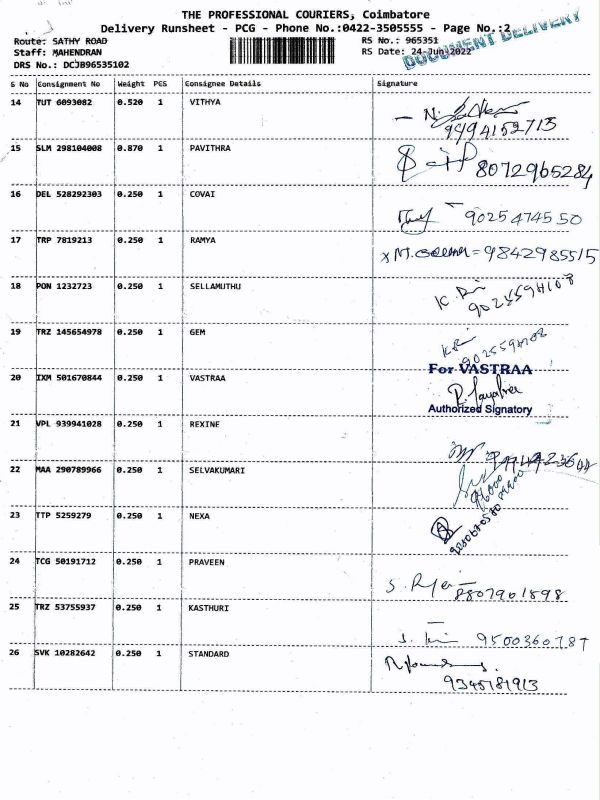 THE PROFESSIONAL COURIERS, Coimbatore
Delivery Runsheet - PCG - Phone No.:0422-3505555 - Page No.:2
Route: SATHY ROAD RS No.: 965351
Staff: MAHENDRAN RS Date: 24-Jun-2022
DOCUMENT DELIVERY
DRS No.: DCJB96535102
S No Consignment No Weight PCS Consignee Details Signature
14 TUT 6093082 0.520 1 VITHYA
9494152713
15 SLM 298104008 0.870 1 PAVITHRA 8072965284
16 DEL 528292303 0.250 1 COVAI 9025474550
17 TRP 7819213 0.250 1 RAMYA 9842985515
18 PON 1232723 0.250 1 SELLAMUTHU
19 TRZ 145654978 0.250 1 GEM
20 IXM 501670844 0.250 1 VASTRAA For VASTRAA
Authorized Signatory
21 VPL 939941028 0.250 1 REXINE
22 MAA 290789966 0.250 1 SELVAKUMARI
23 TTP 5259279 0.250 1 NEXA
24 TCG 50191712 0.250 1 PRAVEEN
8807961898
25 TRZ 53755937 0.250 1 KASTHURI
9500360787
26 SVK 10282642 0.250 1 STANDARD
9345181913